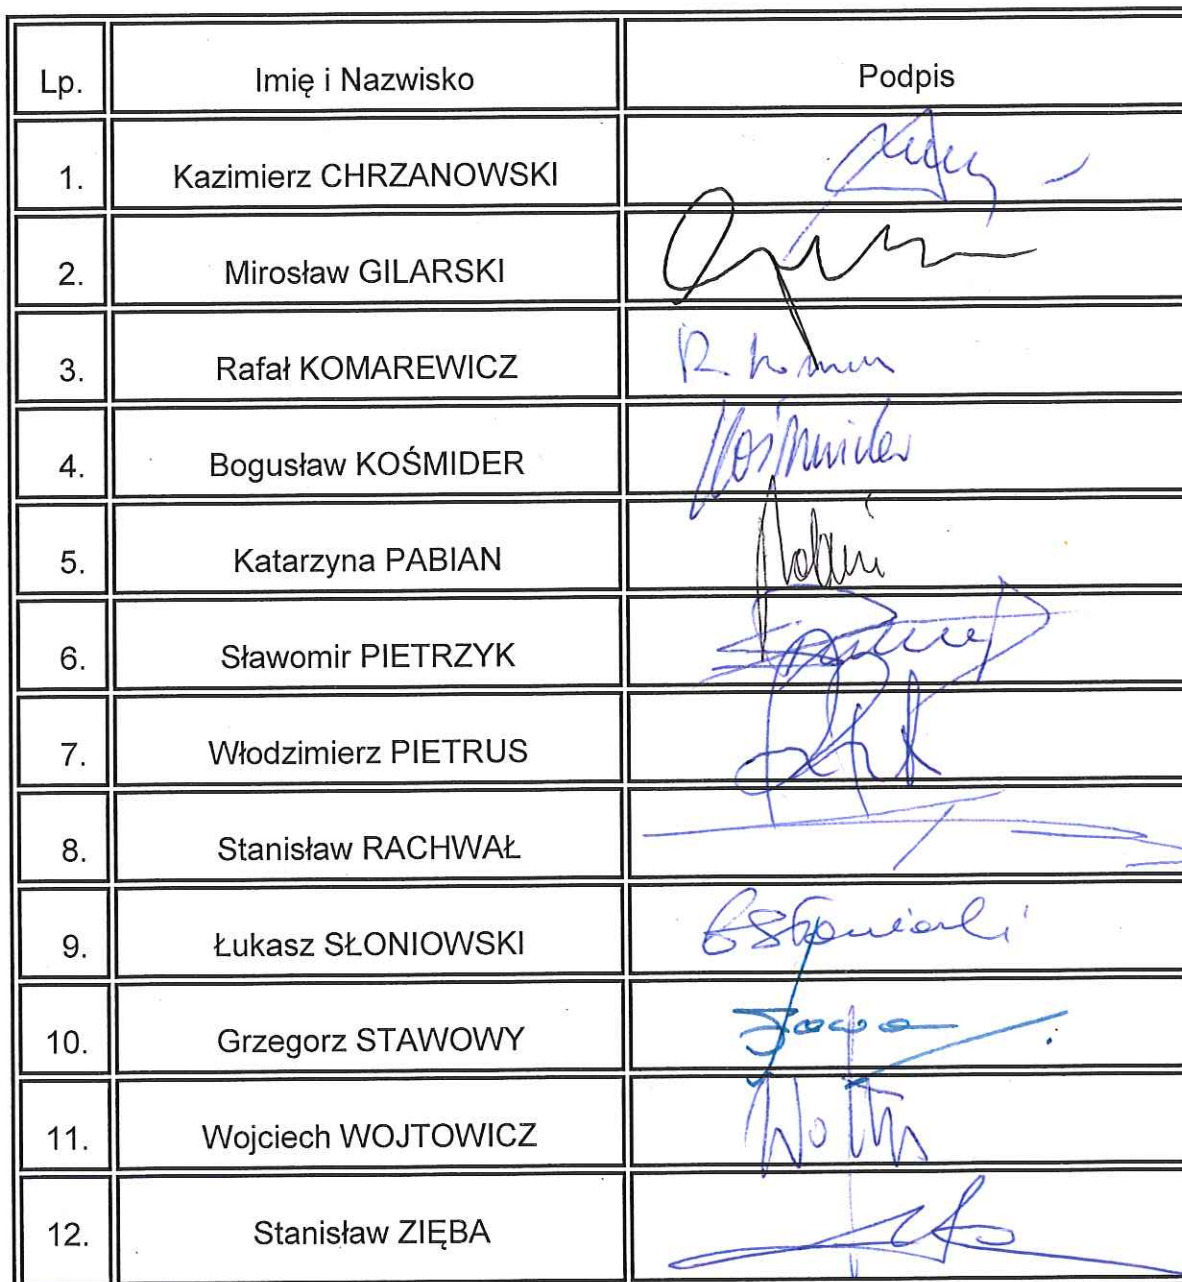 Lp. Imię i Nazwisko Podpis
1. Kazimierz CHRZANOWSKI
2. Mirosław GILARSKI
3. Rafał KOMAREWICZ R.
4. Bogusław KOŚMIDER Kośmider
5. Katarzyna PABIAN
6. Sławomir PIETRZYK
7. Włodzimierz PIETRUS
8. Stanisław RACHWAŁ
9. Łukasz SŁONIOWSKI
10. Grzegorz STAWOWY
11. Wojciech WOJTOWICZ
12. Stanisław ZIĘBA